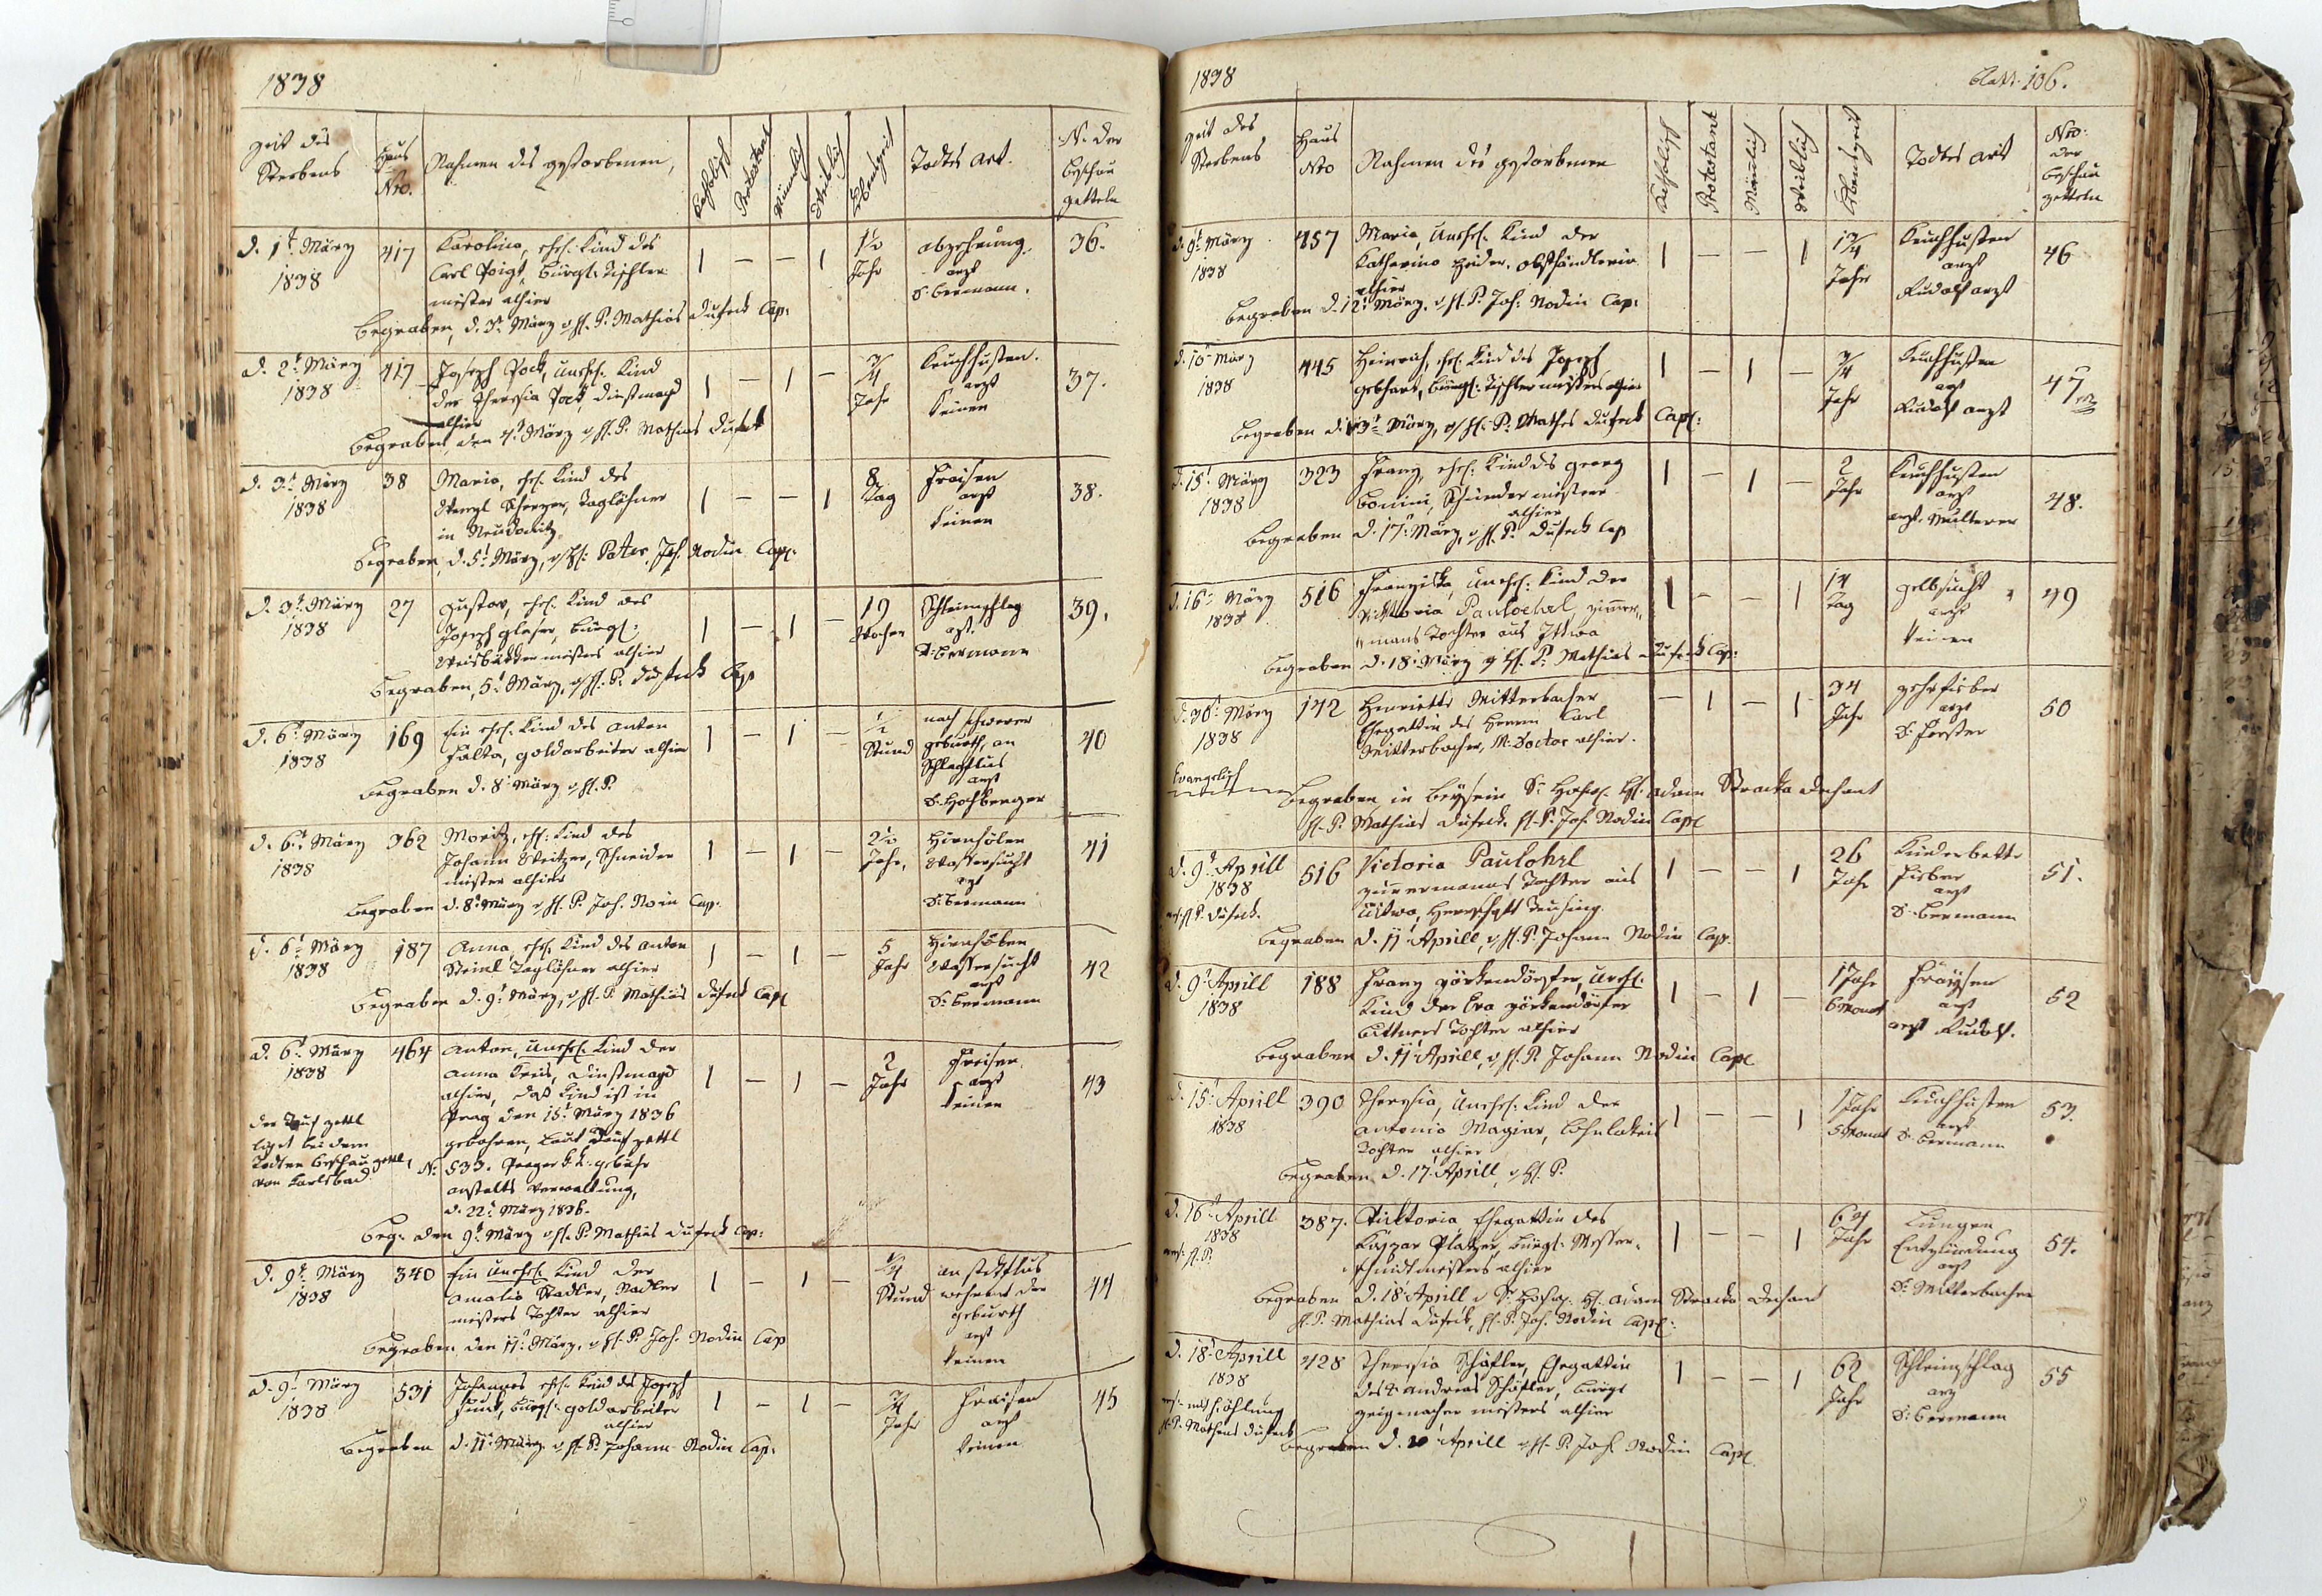 1838
Zeit des
Sterbens
Haus
Nro.
Nahmen des gestorbenen,
Katholisch
Protestant
Männlich
Weiblich
Lebenszeit
Todtes Art.
N. der
beschau
zetteln
d. 1t März
1838
417
Karolina, ehel. Kind des
Carl Voigt, bürgl. Tischler
meister alhier
1 — — 1
1½
Jahr
abzehrung.
arzt
D. Bermann.
36.
Begraben, d. 3t März v H. P. Mathias Dufeck Cap:
d. 2t März
1838
417
Joseph Pock, Unehel. Kind
der Theresia Pock, dinstmagd
alhier
1 — 1 —
¾
Jahr
Keuchhusten.
arzt
Keinen
37.
Begraben, den 4t März v H. P. Mathias Dufeck
d. 3t März
1838
38
Maria, ehel. Kind des
Wenzl Scherzer, Taglöhner
in
1 — — 1
8
Tag
Fraisen
arzt
Keinen
38.
Begraben, d. 5t März, v H: Pater Joh. Nodin Cap:
d. 3t März
1838
27
Gustav, ehel. Kind des
Joseph Glaser, bürgl:
Weisbäcker meisters alhier
1 — 1 —
19
Wochen
Schleimschlag
arzt.
D. Bermann
39.
Begraben, 5t März, v H. P. Dufeck Cap
d. 6t März
1838
169
Ein ehel. Kind des Anton
Falta, goldarbeiter alhier
1 — 1 —
½
Stund
nach schwerer
geburth, an
Schlagflus
arzt
D. Hochberger
40
Begraben d. 8t März v H. P.
d. 6t März
1838
362
Moritz, ehl: Kind des
Johann Weitzer, Schneider
meister alhier
1 — 1 —
2½
Jahr,
Hirnhölen
Wassersucht
arzt
D. Bermann
41
Begraben d. 8t März v H. P. Joh. Nodin Cap.
d. 6t März
1838
187
Anna, ehel. Kind des Anton
Steinl Taglöhner alhier
1 — 1 —
5
Jahr
Hirnhölen
Wassersucht
arzt
D. Bermann
42
Begraben d. 9t März, v H. P. Mathias Dufeck Capl
d. 6t März
1838
464
Anton, Unehel. Kind der
Anna Kreis, Dinstmagd
alhier, das Kind ist in
Prag den 15t März 1836
gebohren, laut Tauf zettl
N: 533. Prager k.k. gebähr
anstalts Verwaltung,
d. 22t März 1836.
1 — 1 —
2
Jahr
Freisen
arzt
Keinen
43
der Tauf zettl
liget bei dem
Todten beschau zettl,
von Karlsbad.
Begr. den 9t März v H. P. Mathias Dufeck Cap:
d. 9t März
1838
340
Ein Unehel. Kind der
Amalia Stadler, Nadler
meisters Tochter alhier
1 — 1 —
¼
Stund
an stikflus
während der
geburth
arzt
Keinen
44
Begraben, den 11t März, v H. P. Joh. Nodin Cap
d. 9t März
1838
531
Johannes, ehel. Kind des Joseph
Funk, bürgl. goldarbeiter
alhier
1 — 1 —
¾
Jahr
Fraisen
arzt
Keinen
45
Begraben d. 11t März v H. P. Johann Nodin Cap:
1838
blatt. 106.
Zeit des
Sterbens
Haus
Nro
Nahmen des gestorbenen
Katholisch
Protestant
Mänlich
Weiblich
Lebenszeit
Todtes art
Nro:
der
beschau
zetteln
d. 9t März
1838
457
Maria, Unehel. Kind der
Katharina Heider, obsthändlerin
alhier
1 — — 1
1¾
Jahr
Keuchhusten
arzt
Rudolf arzt
46
Begraben d. 12t März, v H. P. Joh: Nodin Cap:
d. 10t März
1838
445
Heinrich, ehel. Kind des Joseph
Gebhart, bürgl: Tischler meisters alhier
1 — 1 —
¾
Jahr
Keuchhusten
arzt
Rudolf arzt
47
Begraben d. 13t März, v H: P. Mathes Dufeck Capl:
d. 15t März
1838
323
Franz, ehel. Kind des Georg
Bonini, Schneider meister
alhier
1 — 1 —
2
Jahr
Keuchhusten
arzt
arzt. Multerer
48.
Begraben d. 17t März, v H. P. Dufeck Cap
d. 16t März
1838
516
Franziska, Unehel: Kind der
Viktoria Paulohrl, zimmer„
„mans Tochter aus Ittwa
1 — — 1
14
Tag
gelbsucht
arzt
Keinen
49
Begraben d. 18t März v H. P. Mathias Dufeck Cap:
d. 30t März
1838
142
Henriette Mitterbacher
Ehegattin des Herrn Carl
Mitterbacher, M. Doctor alhier.
— 1 — 1
34
Jahr
zehrfieber
arzt
D. Forster
50
Evangelisch
Begraben in beysein Sr. Hochw. H. Adam Stracka dechant
H. P. Mathias Dufeck. H. P. Joh. Nodin Capl
d. 9t Aprill
1838
516
Victoria Paulohrl
zimermanns Tochter aus
Uitwa, Herrschaft Theusing.
1 — — 1
26
Jahr
Kinderbette
fieber
arzt
D. Bermann
51.
vers. H. P. Dufeck.
Begraben d. 11t Aprill, v H. P. Johann Nodin Cap.
d. 9t Aprill
1838
188
Franz Görkendörfer, Unehl.
Kind der Eva Görkendörfer
Büttners Tochter alhier
1 — 1 —
1 Jahr
6 Monat
Fraysen
arzt
arzt Rudolf.
52
Begraben d. 11t Aprill, v H. P. Johann Nodin Capl
d. 15t Aprill
1838
390
Theresia, Unehel: Kind der
Antonia Magiar, Lohnlakeis
Tochter alhier
1 — — 1
1 Jahr
5 Monat
Keuchhusten
arzt
D. Bermann
53.
Begraben d. 17. Aprill, v H. P.
d. 16t Aprill
1838
387.
Viktoria, Ehegattin des
Kaspar Platzer, bürgl. Messer„
schmidt meisters alhier
1 — — 1
64
Jahr
Lungen
Entzündung
arzt
D. Mitterbacher
54.
vers. H. P.
Begraben d. 18t Aprill v Sr. Hochw. H. Adam Stracka dechant
H. P. Mathias Dufeck, H. P. Joh. Nodin Capl:
d. 18t Aprill
1838
428
Theresia Schäfler, Ehegattin
des Andreas Schäfler, bürgl
zeigmacher meisters alhier
1 — — 1
62
Jahr
Schleimschlag
arz
D. Bermann
55
H. P. Matheus Dufeck
Begraben d. 20t Aprill v H. P. Joh. Nodin Capl